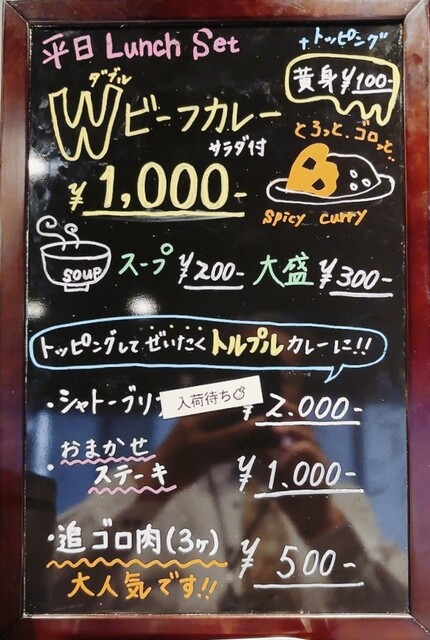 平日 Lunch Set
+トッピング
黄身 ¥100-
ダブル
Wビーフカレー
サラダ付
¥1,000-
とろっと、ゴロっと、
spicy curry
soup
スープ ¥200- 大盛 ¥300-
トッピングしてぜいたくトルプルカレーに!!
・シャトーブリ
入荷待ち
¥2.000-
・おまかせ
ステーキ ¥1.000-
・追ゴロ肉(3ヶ) ¥500-
大人気です!!